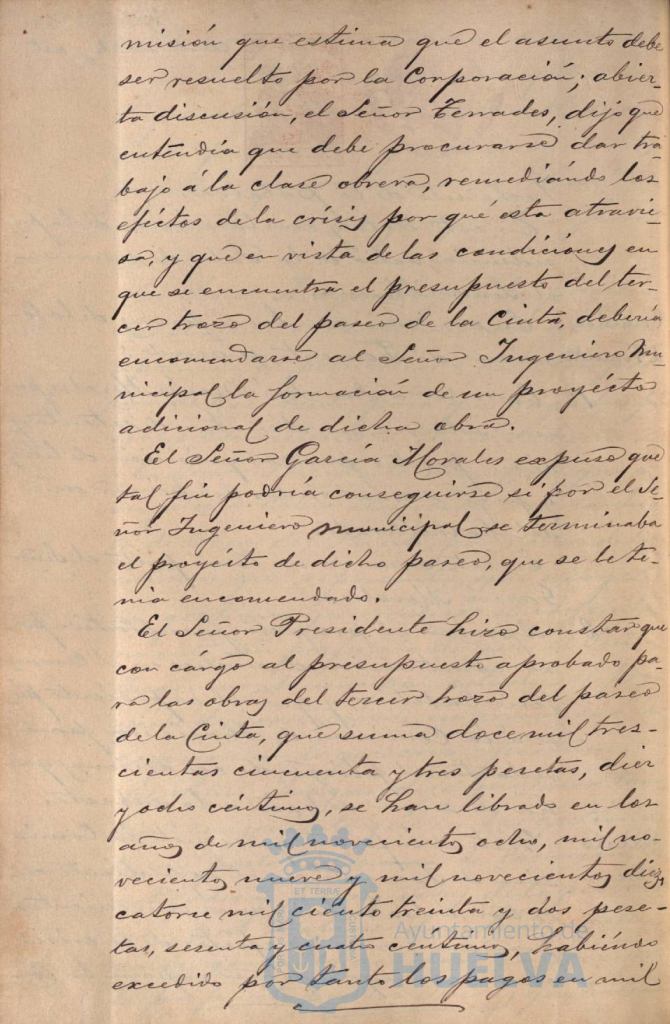 misión que estima que el asunto debe
ser resuelto por la Corporación; abier-
ta discusión, el Señor Terrades, dijo que
entendía que debe procurarse dar tra-
bajo á la clase obrera, remediándo los
eféctos de la crísis por qué esta atravie-
sa, y que en vista de las condiciones en
que se encuentra el presupuesto del ter-
cer trozo del paseo de la Cinta, debería
encomendarse al Señor Ingeniero Mu-
nicipal la formación de un proyécto
adicional de dicha obra.
El Señor García Morales expuso que
tal fin podría conseguirse si por el Se-
ñor Ingeniero municipal se terminaba
el proyécto de dicho paseo, que se le te-
nia encomendado.
El Señor Presidente hizo constar que
con cárgo al presupuesto aprobado pa-
ra las obras del tercer trozo del paseo
de la Cinta, que suma doce mil tres-
cientas cincuenta y tres pesetas, diez
y ocho céntimos, se han librado en los
años de mil novecientos ocho, mil no-
vecientos nueve y mil novecientos diez,
catorce mil ciento treinta y dos pese-
tas, sesenta y cuatro centimos, habiéndo
excedido por tanto los pagos en mil
Ayuntamiento de
HUELVA